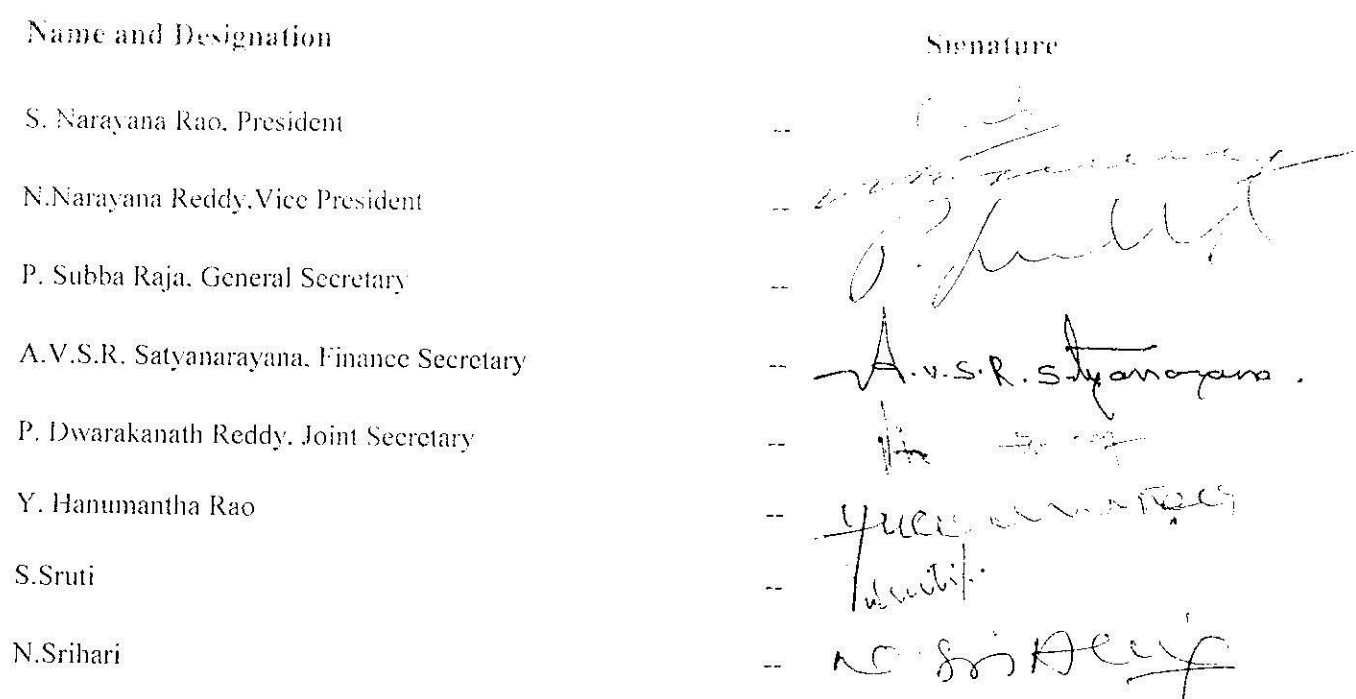 Name and Designation Signature
S. Narayana Rao, President --
N.Narayana Reddy,Vice President --
P. Subba Raja, General Secretary --
A.V.S.R. Satyanarayana, Finance Secretary -- A.V.S.R. Satyanarayana.
P. Dwarakanath Reddy, Joint Secretary --
Y. Hanumantha Rao --
S.Sruti --
N.Srihari --